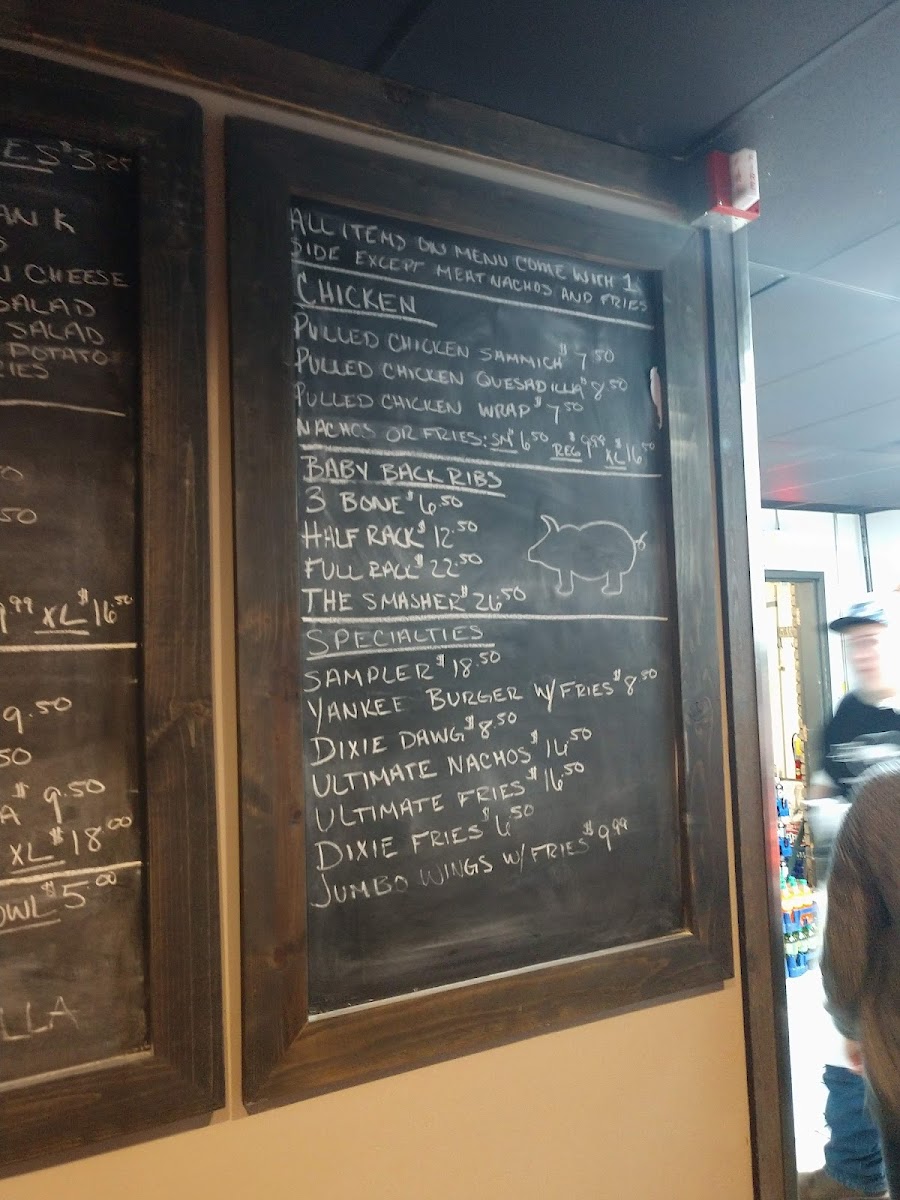 ES $3.25
AN K
S
N CHEESE
SALAD
SALAD
POTATO
RIES
50
9.99 XL $16.50
9.50
50
A $9.50
XL $18.00
OWL $5.00
LLA
ALL ITEMS ON MENU COME WITH 1
SIDE EXCEPT MEAT NACHOS AND FRIES
CHICKEN
PULLED CHICKEN SAMMICH $7.50
PULLED CHICKEN QUESADILLA $8.50
PULLED CHICKEN WRAP $7.50
NACHOS OR FRIES: SM $6.50 REG $9.99 XL $16.50
BABY BACK RIBS
3 BONE $6.50
HALF RACK $12.50
FULL RACK $22.50
THE SMASHER $26.50
SPECIALTIES
SAMPLER $18.50
YANKEE BURGER W/FRIES $8.50
DIXIE DAWG $8.50
ULTIMATE NACHOS $16.50
ULTIMATE FRIES $16.50
DIXIE FRIES $6.50
JUMBO WINGS W/FRIES $9.99